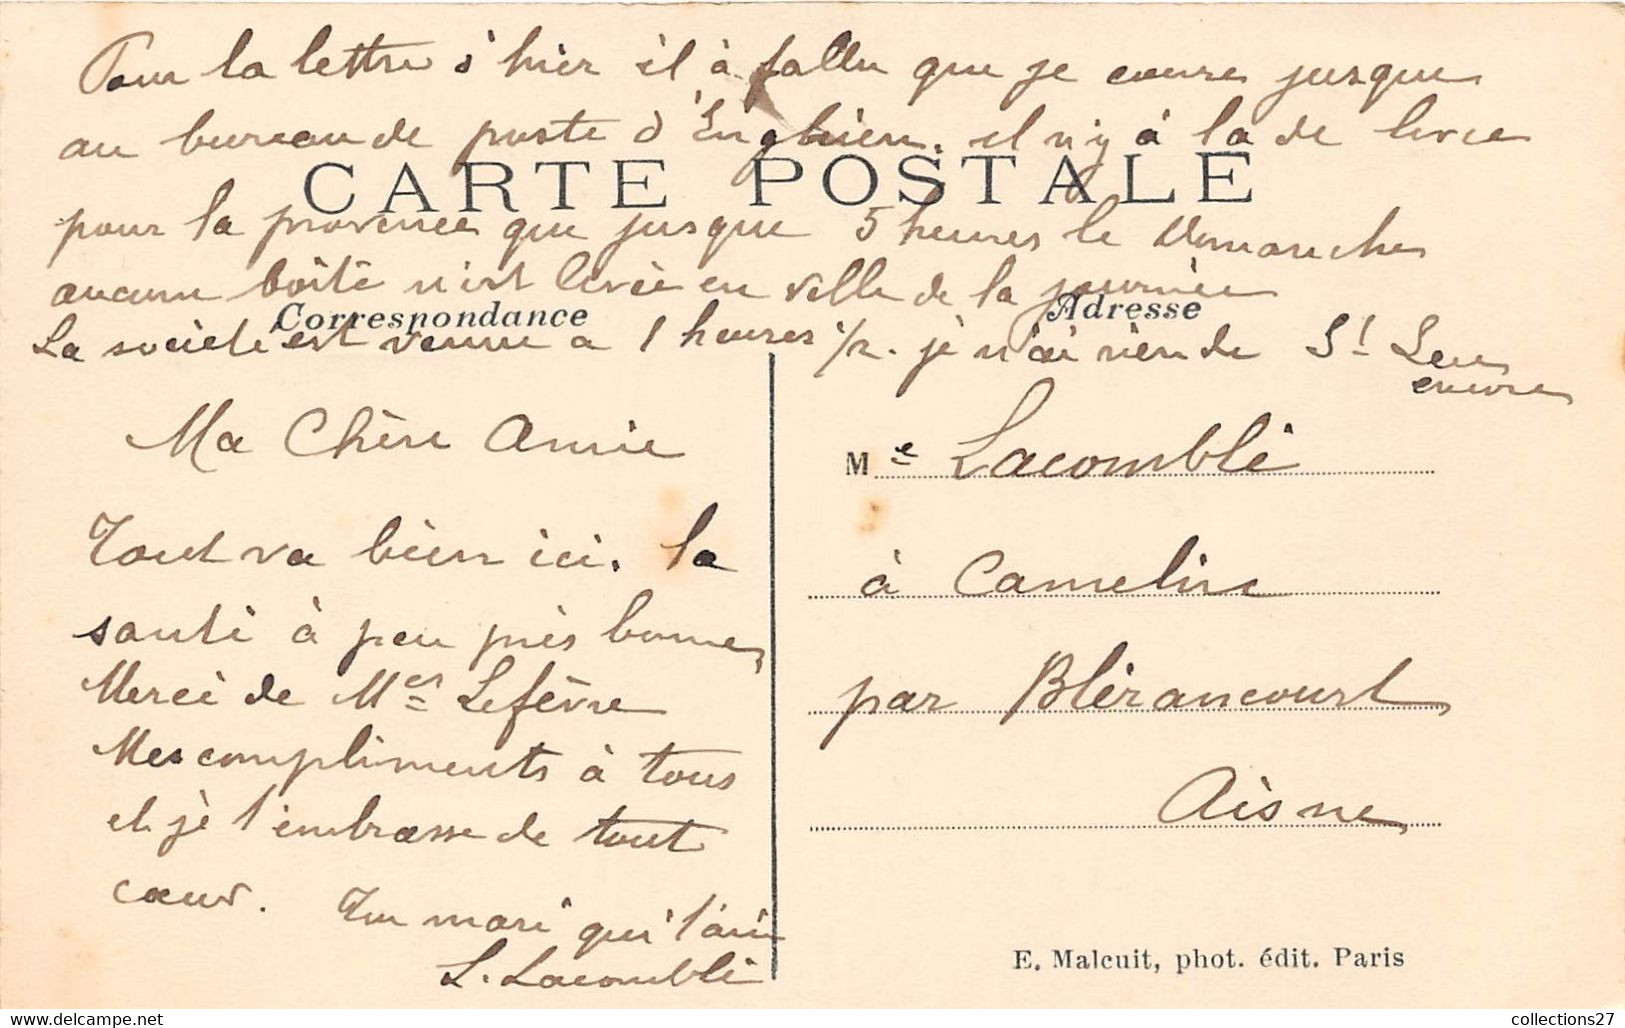 Pour la lettre d'hier il à fallu que je coure jusque
au bureau de poste d'Enghien. il n'y à la de levée
CARTE POSTALE
pour la province que jusque 5 heures le Dimanche
aucune boîte n'est levée en ville de la journée
Correspondance
Adresse
La société est venue a 1 heures 1/2. je n'ai rien de St Leu
encore
Ma Chère Amie
Tout va bien ici. la
santé à peu près bonne
Merci de Mer Lefèvre
Mes compliments à tous
et je t'embrasse de tout
cœur. Ton mari qui t'aime
L. Lacomblé
Me Lacomblé
à Camelin
par Blérancourt
Aisne
E. Malcuit, phot. édit. Paris
collections27